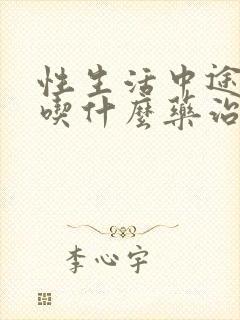 性生活中途
喫什麼藥治
李心宇